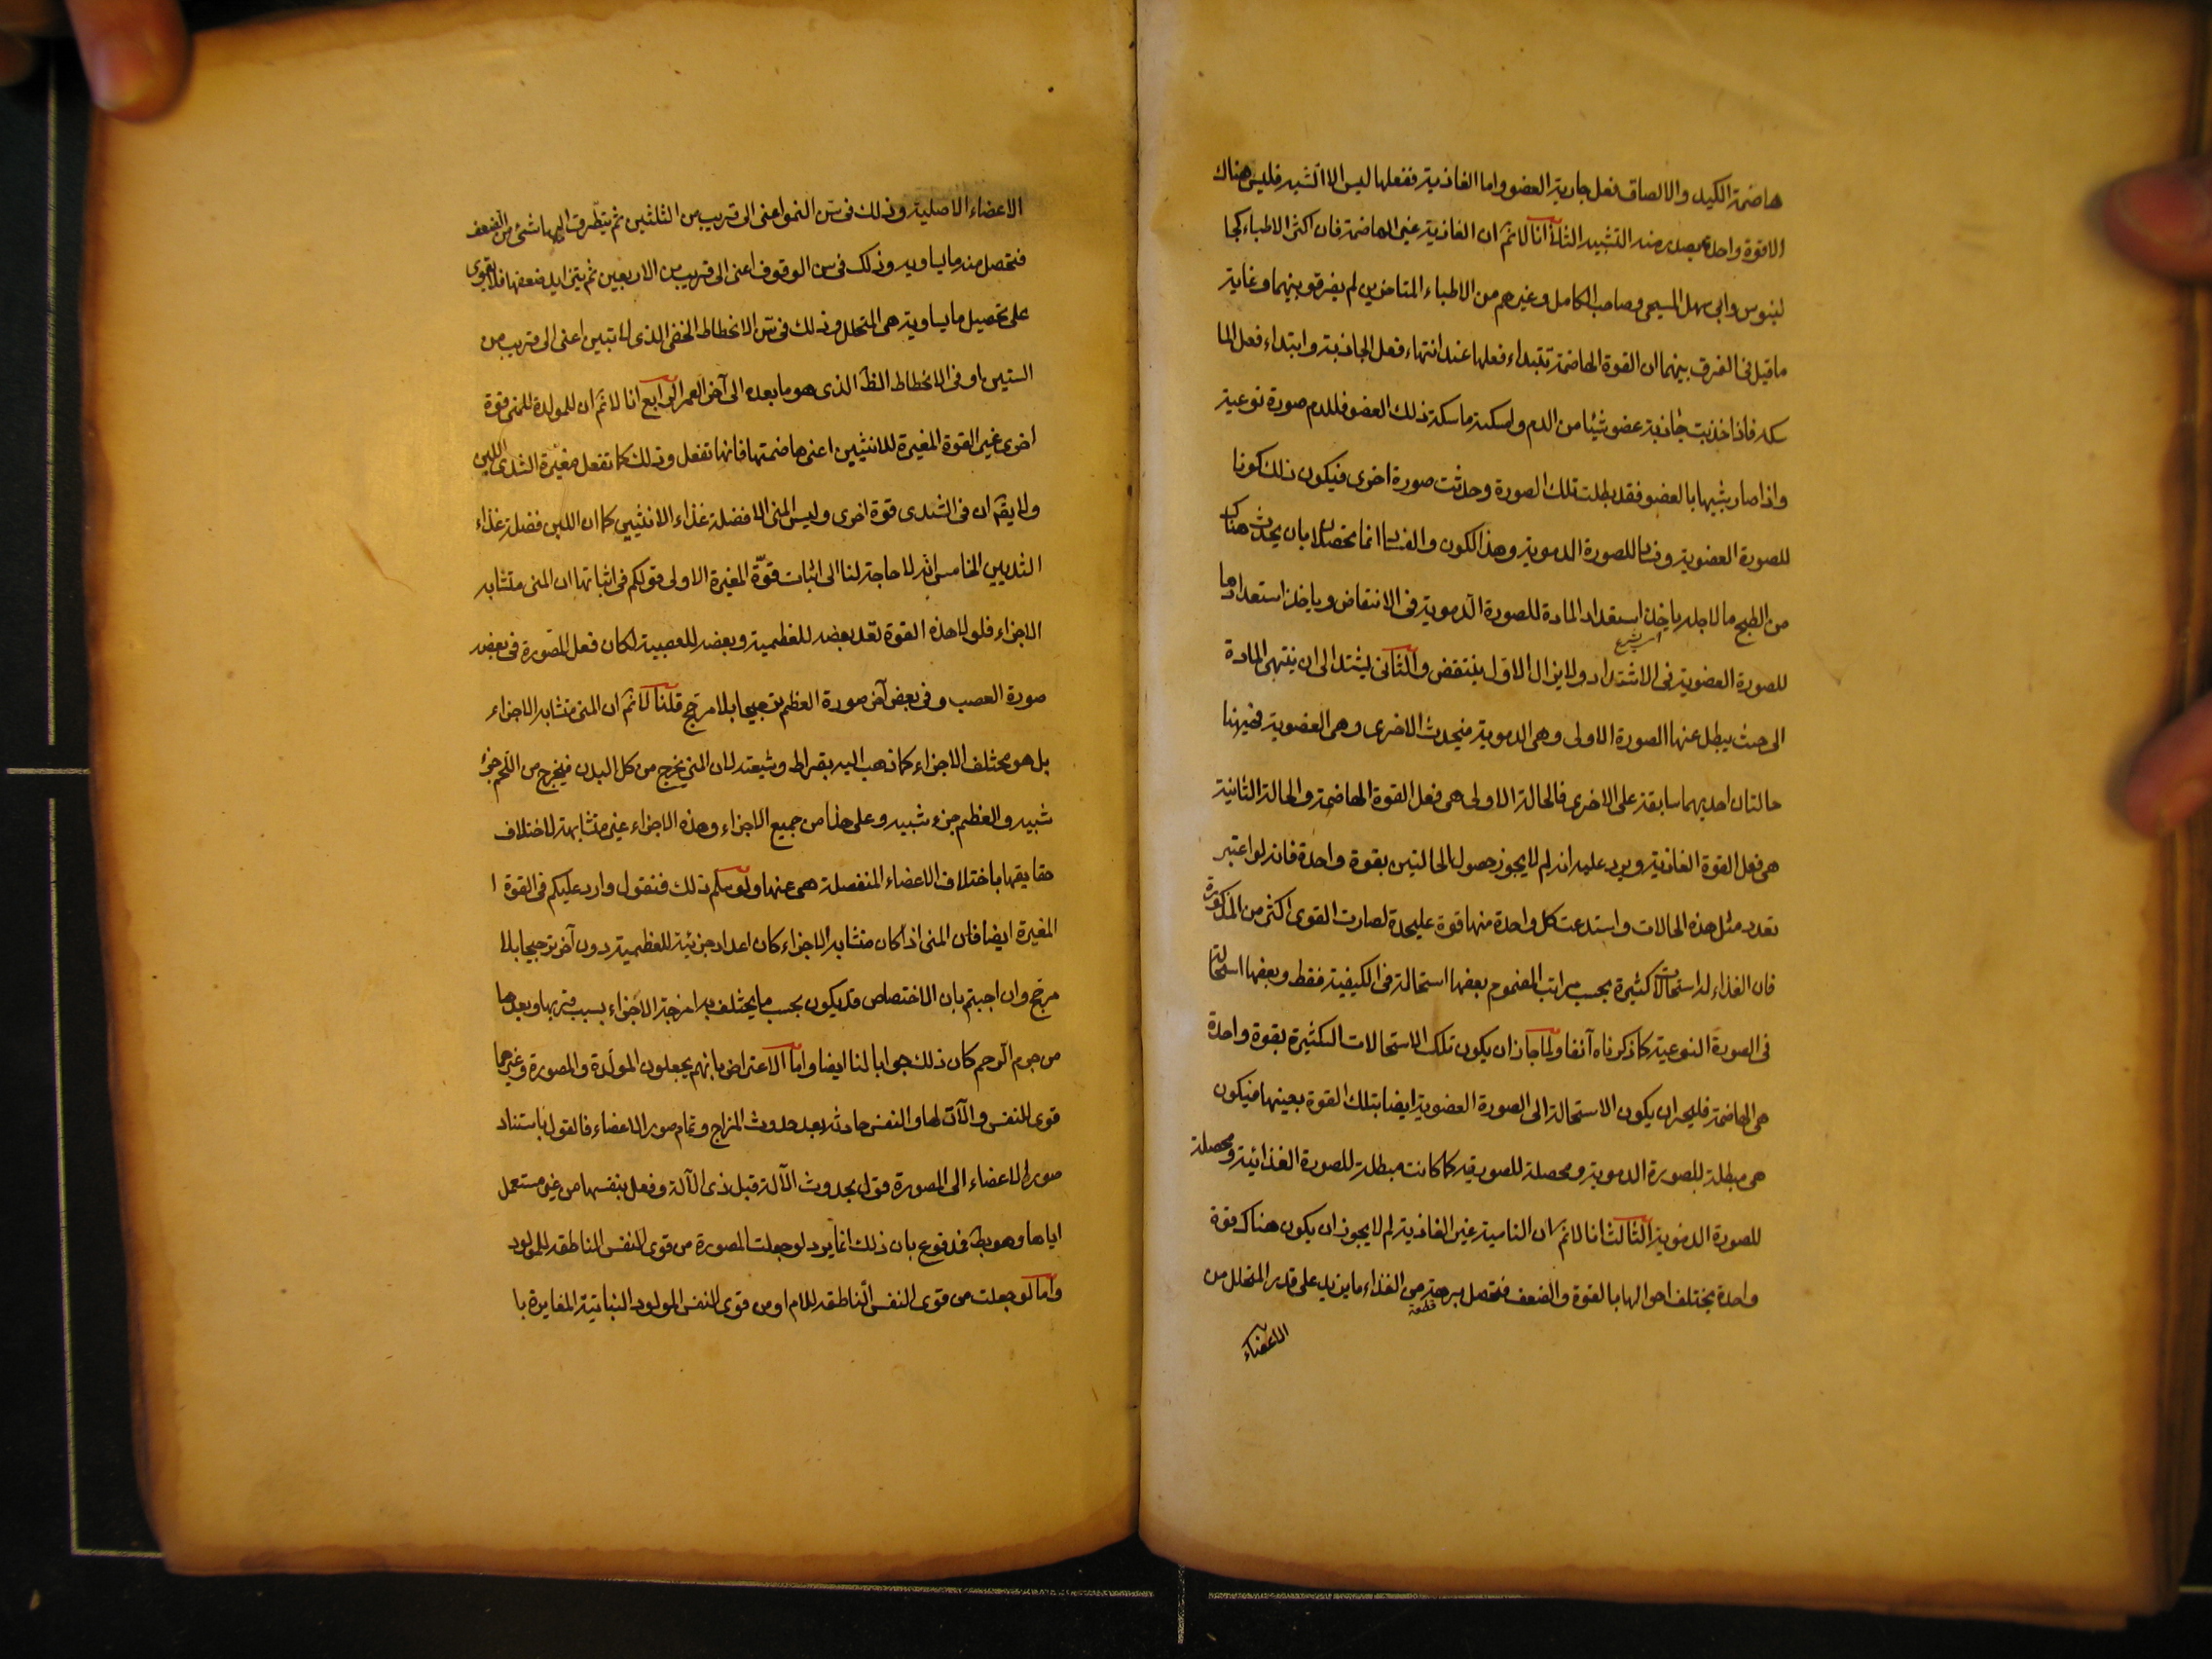 هاضمة الكبد والالصاق فعل جاذبة العضو واما الغاذية ففعلها ليس الا التشبيه فليس هناك
الا قوة واحدة يصدر منه التشبيه الثاني انا لا نم ان الغاذية غير الهاضمة فان اكثر الاطباء كجا
لينوس وابى سهل المسيحى وصاحب الكامل وغيرهم من الاطباء المتاخرين لم يفرقو بينهما وغاية
ما قيل فى الفرق بينهما ان القوة الهاضمة تبتداء فعلها عند انتهاء فعل الجاذبة وابتداء فعل الما
سكة فاذا جذبت جاذبة عضو شيئا من الدم وامسكته ماسكة ذلك العضو فللدم صورة نوعية
واذا صار شبيها بالعضو فقد بطلت تلك الصورة وحدثت صورة اخرى فيكون ذلك كونا
للصورة العضوية وفسادا للصورة الدموية وهذا الكون والفساد انما يحصلان بان يحدث هناك
من الطبخ ما لاجله ياخذ استعداد المادة للصورة الدموية فى الانتقاص وياخذ استعدادها
للصورة العضوية فى الاشتداد ولايزال الاول ينتقص والثانى يشتد الى ان ينتهى المادة
الى حيث يبطل عنها الصورة الاولى وهى الدموية فيحدث الاخرى وهى العضوية فههنا
حالتان احديهما سابقة على الاخرى فالحالة الاولى هى فعل القوة الهاضمة والحالة الثانية
هى فعل القوة الغاذية ويرد عليه انه لم لا يجوز حصول الحالتين بقوة واحدة فانه لو اعتبر
تعدد مثل هذه الحالات واستدعت كل واحدة منها قوة عليحدة لصارت القوى اكثر من المذكورة
فان الغذاء له استحالات كثيرة بحسب مراتب الهضوم بعضها استحالة فى الكيفية فقط وبعضها استحالة
فى الصورة النوعية كما ذكرناه آنفا ولما جاز ان يكون تلك الاستحالات الكثيرة بقوة واحدة
هى الهاضمة فليجز ان يكون الاستحالة الى الصورة العضوية ايضا بتلك القوة بعينها فيكون
هى مبطلة للصورة الدموية ومحصلة للصورة كما كانت مبطلة للصورة الغذائية ومحصلة
للصورة الدموية الثالث انا لا نم ان النامية غير الغاذية لم لا يجوز ان يكون هناك قوة
واحدة يختلف احوالها بالقوة والضعف فتحصل برهة من الغذاء ما يزيد على قدر المتحلل من
الاعضاء
الاعضاء الاصلية وذلك فى سن النمو اعنى الى قريب من الثلثين ثم يتطرق اليها شئ من الضعف
فتحصل منه ما يساويه وذلك فى سن الوقوف اعنى الى قريب من الاربعين ثم يتزايد ضعفها فلا يقوى
على تحصيل ما يساويه هى المتحلل وذلك فى سن الانحطاط الخفى الذى لا تبين اعنى الى قريب من
الستين او فى الانحطاط الظ الذى هو ما بعده الى آخر العمر الرابع انا لا نم ان للمولدة للمنى قوة
اخرى غير القوة المغيرة للانثيين اعنى هاضمتها فانها تفعل وذلك كما تفعل مغيرة الثدى اللبن
ولا يقم ان فى الثدى قوة اخرى وليس المنى الا فضلة غذاء الانثيين كما ان اللبن فضلة غذاء
الثديين الخامس انه لا حاجة لنا الى اثبات قوة المغيرة الاولى قولكم فى اثباتها ان المنى متشابه
الاجزاء فلولا هذه القوة تعد بعضه للعظمية وبعضه للعصبية لكان فعل المصورة فى بعضه
صورة العصب وفى بعض آخر صورة العظم ترجيحا بلا مرجح قلنا لا نم ان المنى متشابه الاجزاء
بل هو مختلف الاجزاء كما ذهب اليه بقراط وشيعته لان المنى يخرج من كل البدن فيخرج من اللحم جزء
شبيه والعظم جزء شبيه وعلى هذا من جميع الاجزاء وهذه الاجزاء غير متشابهة لاختلاف
حقايقها باختلاف الاعضاء المنفصلة هى عنها ولو سلم ذلك فنقول وارد عليكم فى القوة ا
المغيرة ايضا فان المنى اذا كان متشابه الاجزاء كان اعداد جزئية للعظمية دون آخر ترجيحا بلا
مرجح وان اجبتم بان الاختصاص قد يكون بحسب ما يختلف به امزجة الاجزاء بسبب قربها وبعدها
من جرم الرحم كان ذلك جوابا لنا ايضا واما الاعتراض بانهم يجعلون المولدة والمصورة وغيرهما
قوى للنفس والآت لها والنفس حادثة بعد حدوث المزاج وتمام صور الاعضاء فالقول باستناد
صور الاعضاء الى المصورة قول بحدوث الآلة قبل ذى الآلة وفعل بنفسها من غير مستعمل
اياها وهو بط فمدفوع بان ذلك انما يرد لو جعلت المصورة من قوى النفس الناطقة للمولود
واما لو جعلت من قوى النفس الناطقة للام او من قوى النفس المولود النباتية المغايرة با